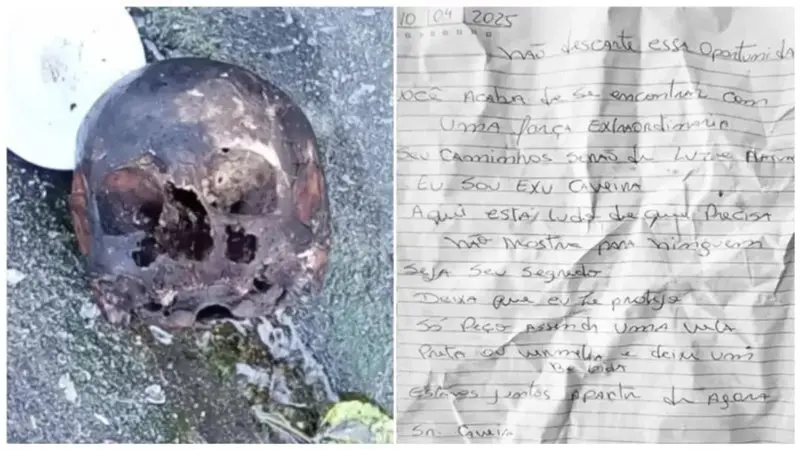 10 04 2025
Não descarte essa oportunida
Você acaba de se encontrar com
uma força extraordinaria
Seu camminhos serão de luz e
Eu sou Exu Caveira
Aqui esta tudo de que precisa
não mostre para ninguem
Seja seu segredo
Deixa que eu te proteja
Só peço assenda uma vela
preta ou vermelha e deixe um
Bebida
Estamos juntos aparti de agora
Sr. Caveira